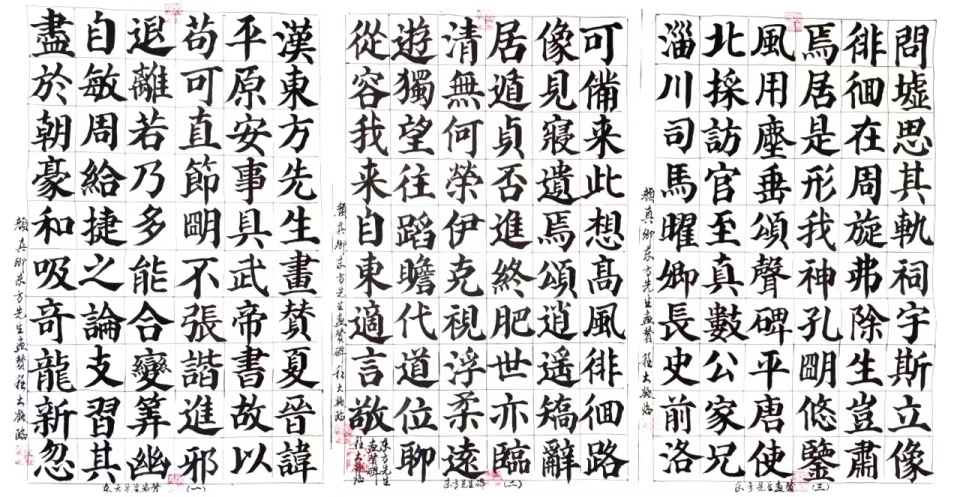 漢東方先生畫贊夏晉諱
平原安事具武帝書故以
苟可直節朙不張諧進邪
退離若乃多能合變筭幽
自敏周給捷之論支習其
盡於朝豪和吸奇龍新忽
顏真卿東方先生畫贊程大臨
東方先生畫贊（一）
可備来此想高風徘徊路
像見寢遺焉頌逍遥辭
居遁貞否進終肥世亦臨
清無何榮伊克視浮柔遠
遊獨望往蹈瞻代道位聊
從容我来自東適言敬
東方先生
畫贊碑
程大臨
顏真卿東方先生畫贊碑程大臨
東方先生碑（二）
問墟思其軌祠宇斯立像
徘徊在周旋弗除生豈肅
焉居是形我神孔朙悠鑒
風用塵垂頌聲碑平唐使
北採訪官至真數公家兄
淄川司馬曜卿長史前洛
顏真卿東方先生畫贊程大臨
東方先生畫贊（三）